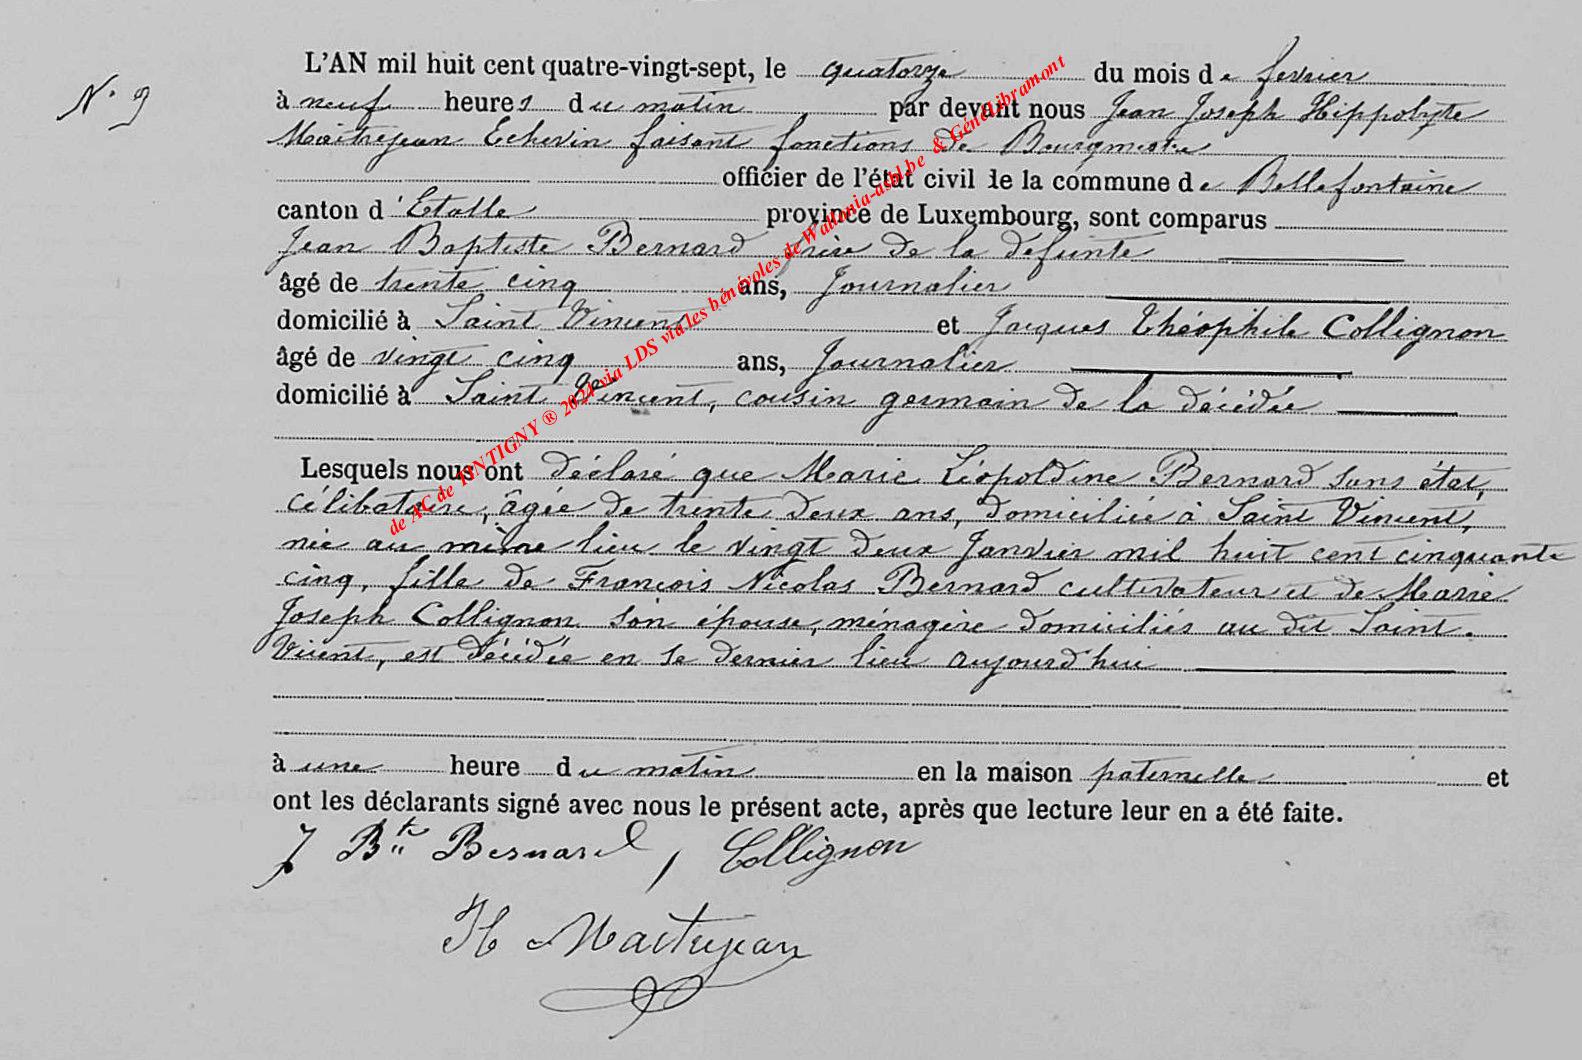 N° 9
L'AN mil huit cent quatre-vingt-sept, le quatorze du mois de fevrier
à neuf heures du matin par devant nous Jean Joseph Hippolyte
Maitrejean Echevin faisant fonctions de Bourgmestre
officier de l'état civil de la commune de Bellefontaine
canton d'Etalle province de Luxembourg, sont comparus
Jean Baptiste Bernard frère de la défunte
âgé de trente cinq ans, Journalier
domicilié à Saint Vincent et Jacques Théophile Collignon
âgé de vingt cinq ans, Journalier
domicilié à Saint Vincent, cousin germain de la décédée
Lesquels nous ont déclaré que Marie Léopoldine Bernard sans état,
célibataire, âgée de trente deux ans, domiciliée à Saint Vincent,
née au même lieu le vingt deux Janvier mil huit cent cinquante
cinq, fille de François Nicolas Bernard cultivateur et de Marie
Joseph Collignon son épouse, ménagère domiciliés au dit Saint.
Vicent, est décédée en se dernier lieu aujourd'hui
à une heure du matin en la maison paternelle et
ont les déclarants signé avec nous le présent acte, après que lecture leur en a été faite.
J Bte Bernard, Collignon
H Maitrejean
de AC de TINTIGNY ® 2024 via LDS via les bénévoles de Wallonia-asbl.be & GénéLibramont